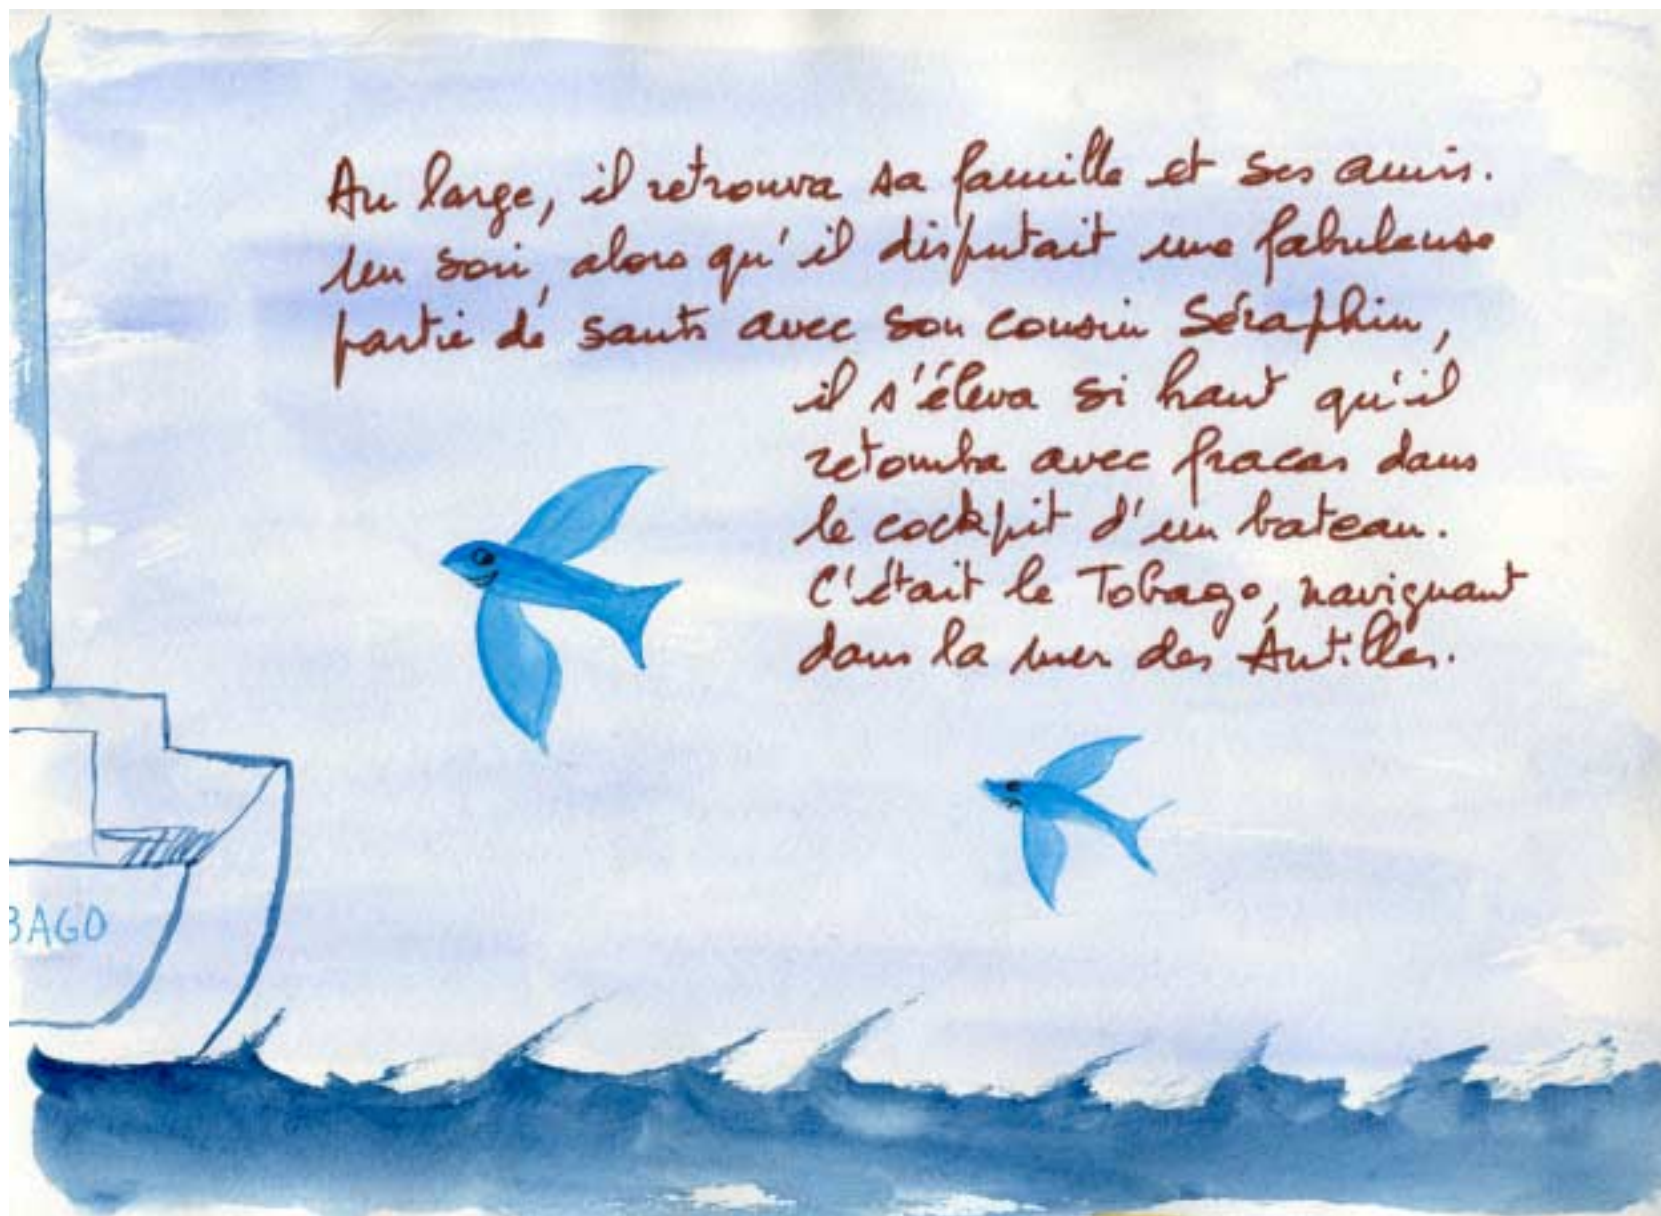 Au large, il retrouva sa famille et ses amis.
Un soir, alors qu'il disputait une fabuleuse
partie de sauts avec son cousin Séraphin,
il s'éleva si haut qu'il
retomba avec fracas dans
le cockpit d'un bateau.
C'était le Tobago, naviguant
dans la mer des Antilles.
BAGO